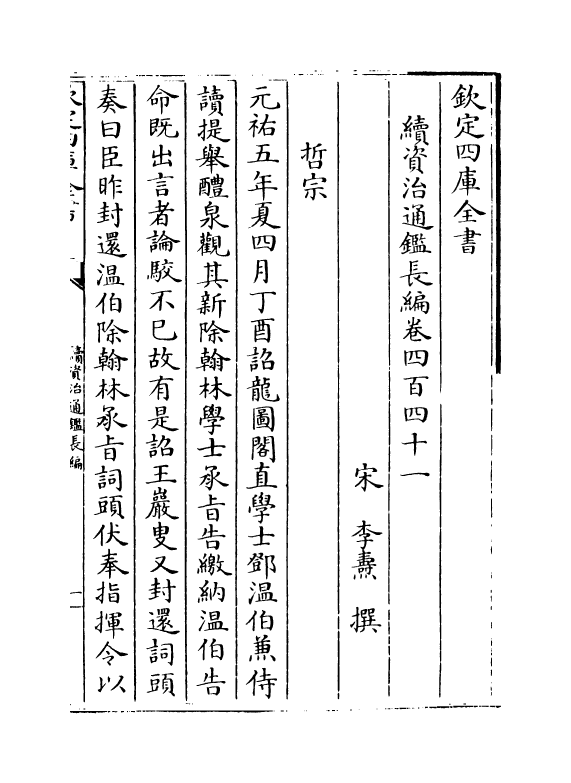 欽定四庫全書
續資治通鑑長編卷四百四十一
宋　李燾　撰
哲宗
元祐五年夏四月丁酉詔龍圖閣直學士鄧温伯兼侍
讀提舉醴泉觀其新除翰林學士承旨告繳納温伯告
命既出言者論駮不已故有是詔王巖叟又封還詞頭
奏曰臣昨封還温伯除翰林承旨詞頭伏奉指揮令以
欽定四庫全書
續資治通鑑長編
一